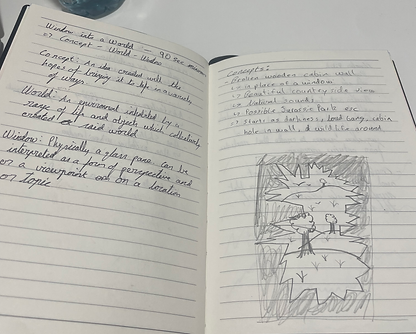 Window into a World — 90 Sec
Concept - World - Window
Concept: An idea created with the
hopes of bringing it to life in a variety
of ways
World: An enviroment inhabited by a
range of life and objects which collectively
created said world
Window: Physically a glass pane can be
interpreted as a form of perspective and
or a viewpoint on a location
or topic
Concepts:
Broken wooden cabin wall
in place of a window
Beautiful country side view
Natural Sounds
Possible Jurassic Park
Starts as darkness, cabin
hole in wall, & wildlife around